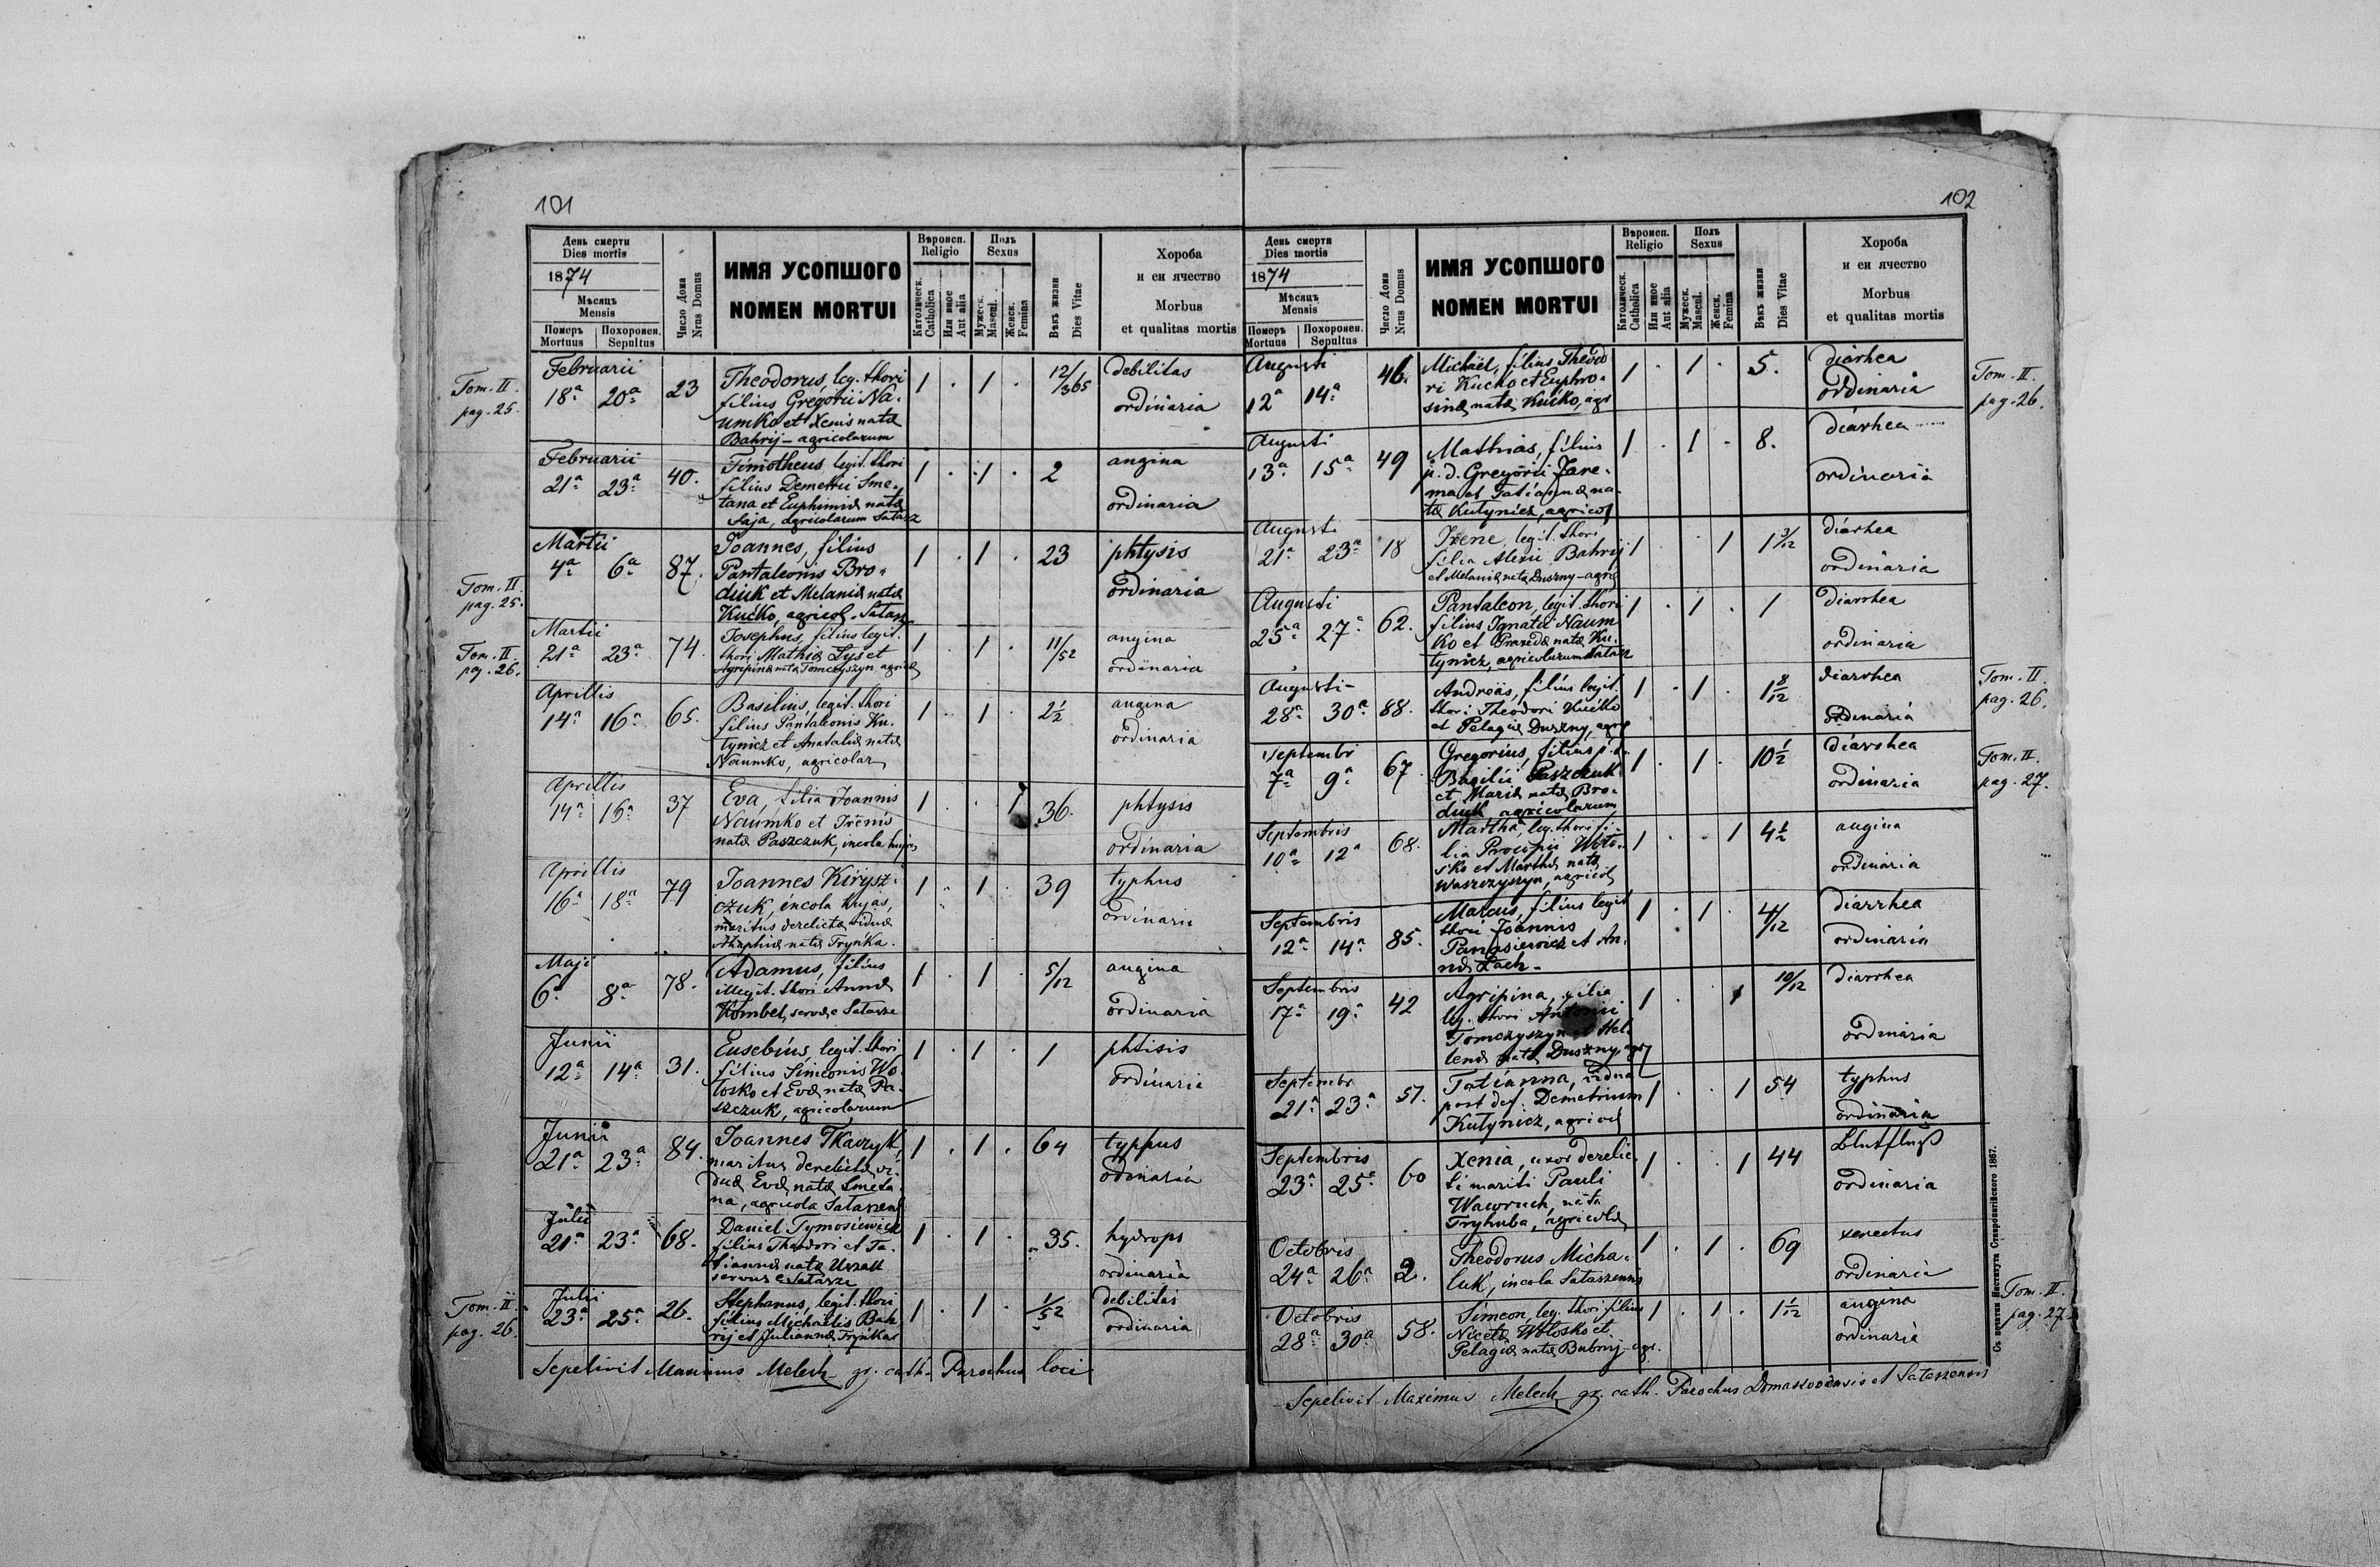 101
День смерти
Dies mortis
1874
Мѣсяць
Mensis
Померъ
Mortuus
Похоронен.
Sepultus
Число Дома
Nrus Domus
ИМЯ УСОПШОГО
NOMEN MORTUI
Вѣроисп.
Religio
Католическ.
Catholica
Или иное
Aut alia
Полъ
Sexus
Мужеск.
Mascul.
Женск.
Femina
Вѣкъ жизни
Dies Vitae
Хороба
и еи ячество
Morbus
et qualitas mortis
Tom. II.
pag. 25.
Februarii
18ª 20ª 23
Theodorus, leg. thori
filius Gregorii Na-
umko et Xenis natæ
Bahrij - agricolarum
1 . 1 . 12/365
debilitas
ordinaria
Februarii
21ª 23ª 40.
Timotheus, legit. thori
filius Demetrii Sme-
tana et Euphimiæ natæ
Saja, agricolarum Satasz
1 . 1 . 2
angina
ordinaria
Tom. II.
pag. 25.
Martii
4ª 6ª 87.
Joannes, filius
Pantaleonis Bro-
diuk et Melaniæ natæ
Kućko, agricol. Satasz
1 . 1 . 23
phtysis
ordinaria
Tom. II.
pag. 26.
Martii
21ª 23ª 74.
Josephus, filius legit.
thori Mathiæ Lys et
Agripinæ natæ Tomczyszyn agricol
1 . 1 . 11/52
angina
ordinaria
Aprillis
14ª 16ª 65.
Basilius, legit. thori
filius Pantaleonis Ku-
tynicz et Anataliæ natæ
Naumko, agricolar
1 . 1 . 2½
angina
ordinaria
Aprillis
14ª 16ª 37
Eva, filia Joannis
Naumko et Irenis
natæ Paszczuk, incola hujas
1 . . 1 36.
phtysis
ordinaria
Aprillis
16ª 18ª 79
Joannes Kirysz-
czuk, incola hujas,
maritus derelictæ viduæ
Ahaphiæ natæ Tryńka.
1 . 1 . 39
typhus
ordinaria
Maji
6ª 8ª 78.
Adamus, filius
illegit. thori Annæ
Kombel, servæ e Satasze
1 . 1 . 5/12
angina
ordinaria
Junii
12ª 14ª 31.
Eusebius, legit. thori
filius Simeonis Wo-
łosko et Evæ natæ Pa-
szczuk, agricolarum
1 . 1 . 1
phtisis
ordinaria
Junii
21ª 23ª 84.
Joannes Tkaczyk,
maritus derelictæ vi-
duæ Evæ natæ Smeta-
na, agricola Sataszens
1 . 1 . 64
typhus
odinaria
Julii
21ª 23ª 68.
Daniel Tymosiewicz
filius Theodori et Ta-
tiannæ natæ
servus e Satasze
1 . 1 . 35.
hydrops
ordinaria
Tom. II.
pag. 26.
Julii
23ª 25ª 26.
Stephanus, legit. thori
filius Michaëlis Bah-
rij et Juliannæ Tryńka
1 . 1 . 1/52
debilitas
ordinaria
Sepelivit Maximus Melech gr. cath. Parochus loci
102
День смерти
Dies mortis
1874
Мѣсяць
Mensis
Померъ
Mortuus
Похоронен.
Sepultus
Число Дома
Nrus Domus
ИМЯ УСОПШОГО
NOMEN MORTUI
Вѣроисп.
Religio
Католическ.
Catholica
Или иное
Aut alia
Полъ
Sexus
Мужеск.
Mascul.
Женск.
Femina
Вѣкъ жизни
Dies Vitae
Хороба
и еи ячество
Morbus
et qualitas mortis
Tom. II.
pag. 26.
Augusti
12ª 14ª 46.
Michaël, filius Theodo-
ri Kućko et Euphro-
sinæ natæ Kućko, agr
1 . 1 . 5.
diarhea
ordinaria
Augusti
13ª 15ª 49
Mathias, filius
p. d. Gregorii Jare-
ma et Tatiannæ na-
tæ Kutynicz, agricol
1 . 1 . 8.
diarhea
ordinaria
Augusti
21ª 23ª 18
Irene, legit. thori
filia Alexii Bahrij
et Melaniæ natæ Duszny - agric
1 . . 1 1 3/12
diarhea
ordinaria
Augusti
25ª 27ª 62.
Pantaleon, legit. thori
filius Ignatii Naum
ko et Praxedæ natæ Ku-
tynicz, agricolarum Satasz
1 . 1 . 1
diarrhea
ordinaria
Tom. II.
pag. 26.
Augusti
28ª 30ª 88.
Andreas, filius legit.
thori Theodori Kućko
et Pelagiæ Duszny, agric
1 . 1 . 1 8/12
diarrhea
ordinaria
Tom. II.
pag. 27.
Septembr
7ª 9ª 67.
Gregorius, filius p. d.
Basilii Paszczuk
et Mariæ natæ Bro-
diuk agricolarum
1 . 1 . 10½
diarrhea
ordinaria
Septembris
10ª 12ª 68.
Martha, leg. thori fi-
lia Procopii Woło-
sko et Marthæ natæ
Waszczyszyn, agricol
1 . . 1 4½
angina
ordinaria
Septembris
12ª 14ª 85.
Marcus, filius legit
thori Joannis
Panasiewicz et An-
næ Lach-
1 . 1 . 4/12
diarrhea
ordinaria
Septembris
17ª 19ª 42
Agripina, filia
leg. thori Antonii
Tomczyszyn et Hel-
lenæ natæ Duszny, agr
1 . . 1 10/12
diarrhea
ordinaria
Septembr
21ª 23ª 51.
Tatianna, vidua
post def. Demetrium
Kutynicz, agricol
1 . . 1 54
typhus
ordinaria
Septembris
23ª 25ª 60
Xenia, uxor derelic-
ti mariti Pauli
Wawruch, nata
Tryhuba, agricolæ
1 . . 1 44
Blutfluß
ordinaria
Octobris
24ª 26ª 2.
Theodorus Micha-
luk, incola Sataszensis
1 . 1 . 69
xenectus
ordinaria
Tom. II.
pag. 27.
Octobris
28ª 30ª 58.
Simeon, leg. thori filius
Nicetæ Wołosko et
Pelagiæ natæ Bubnij - agr.
1 . 1 . 1 1/12
angina
ordinaria
Sepelivit Maximus Melech gr. cath. Parochus Domaszoviensis et Sataszensis
Съ печатни Института Ставропигійского 1867.